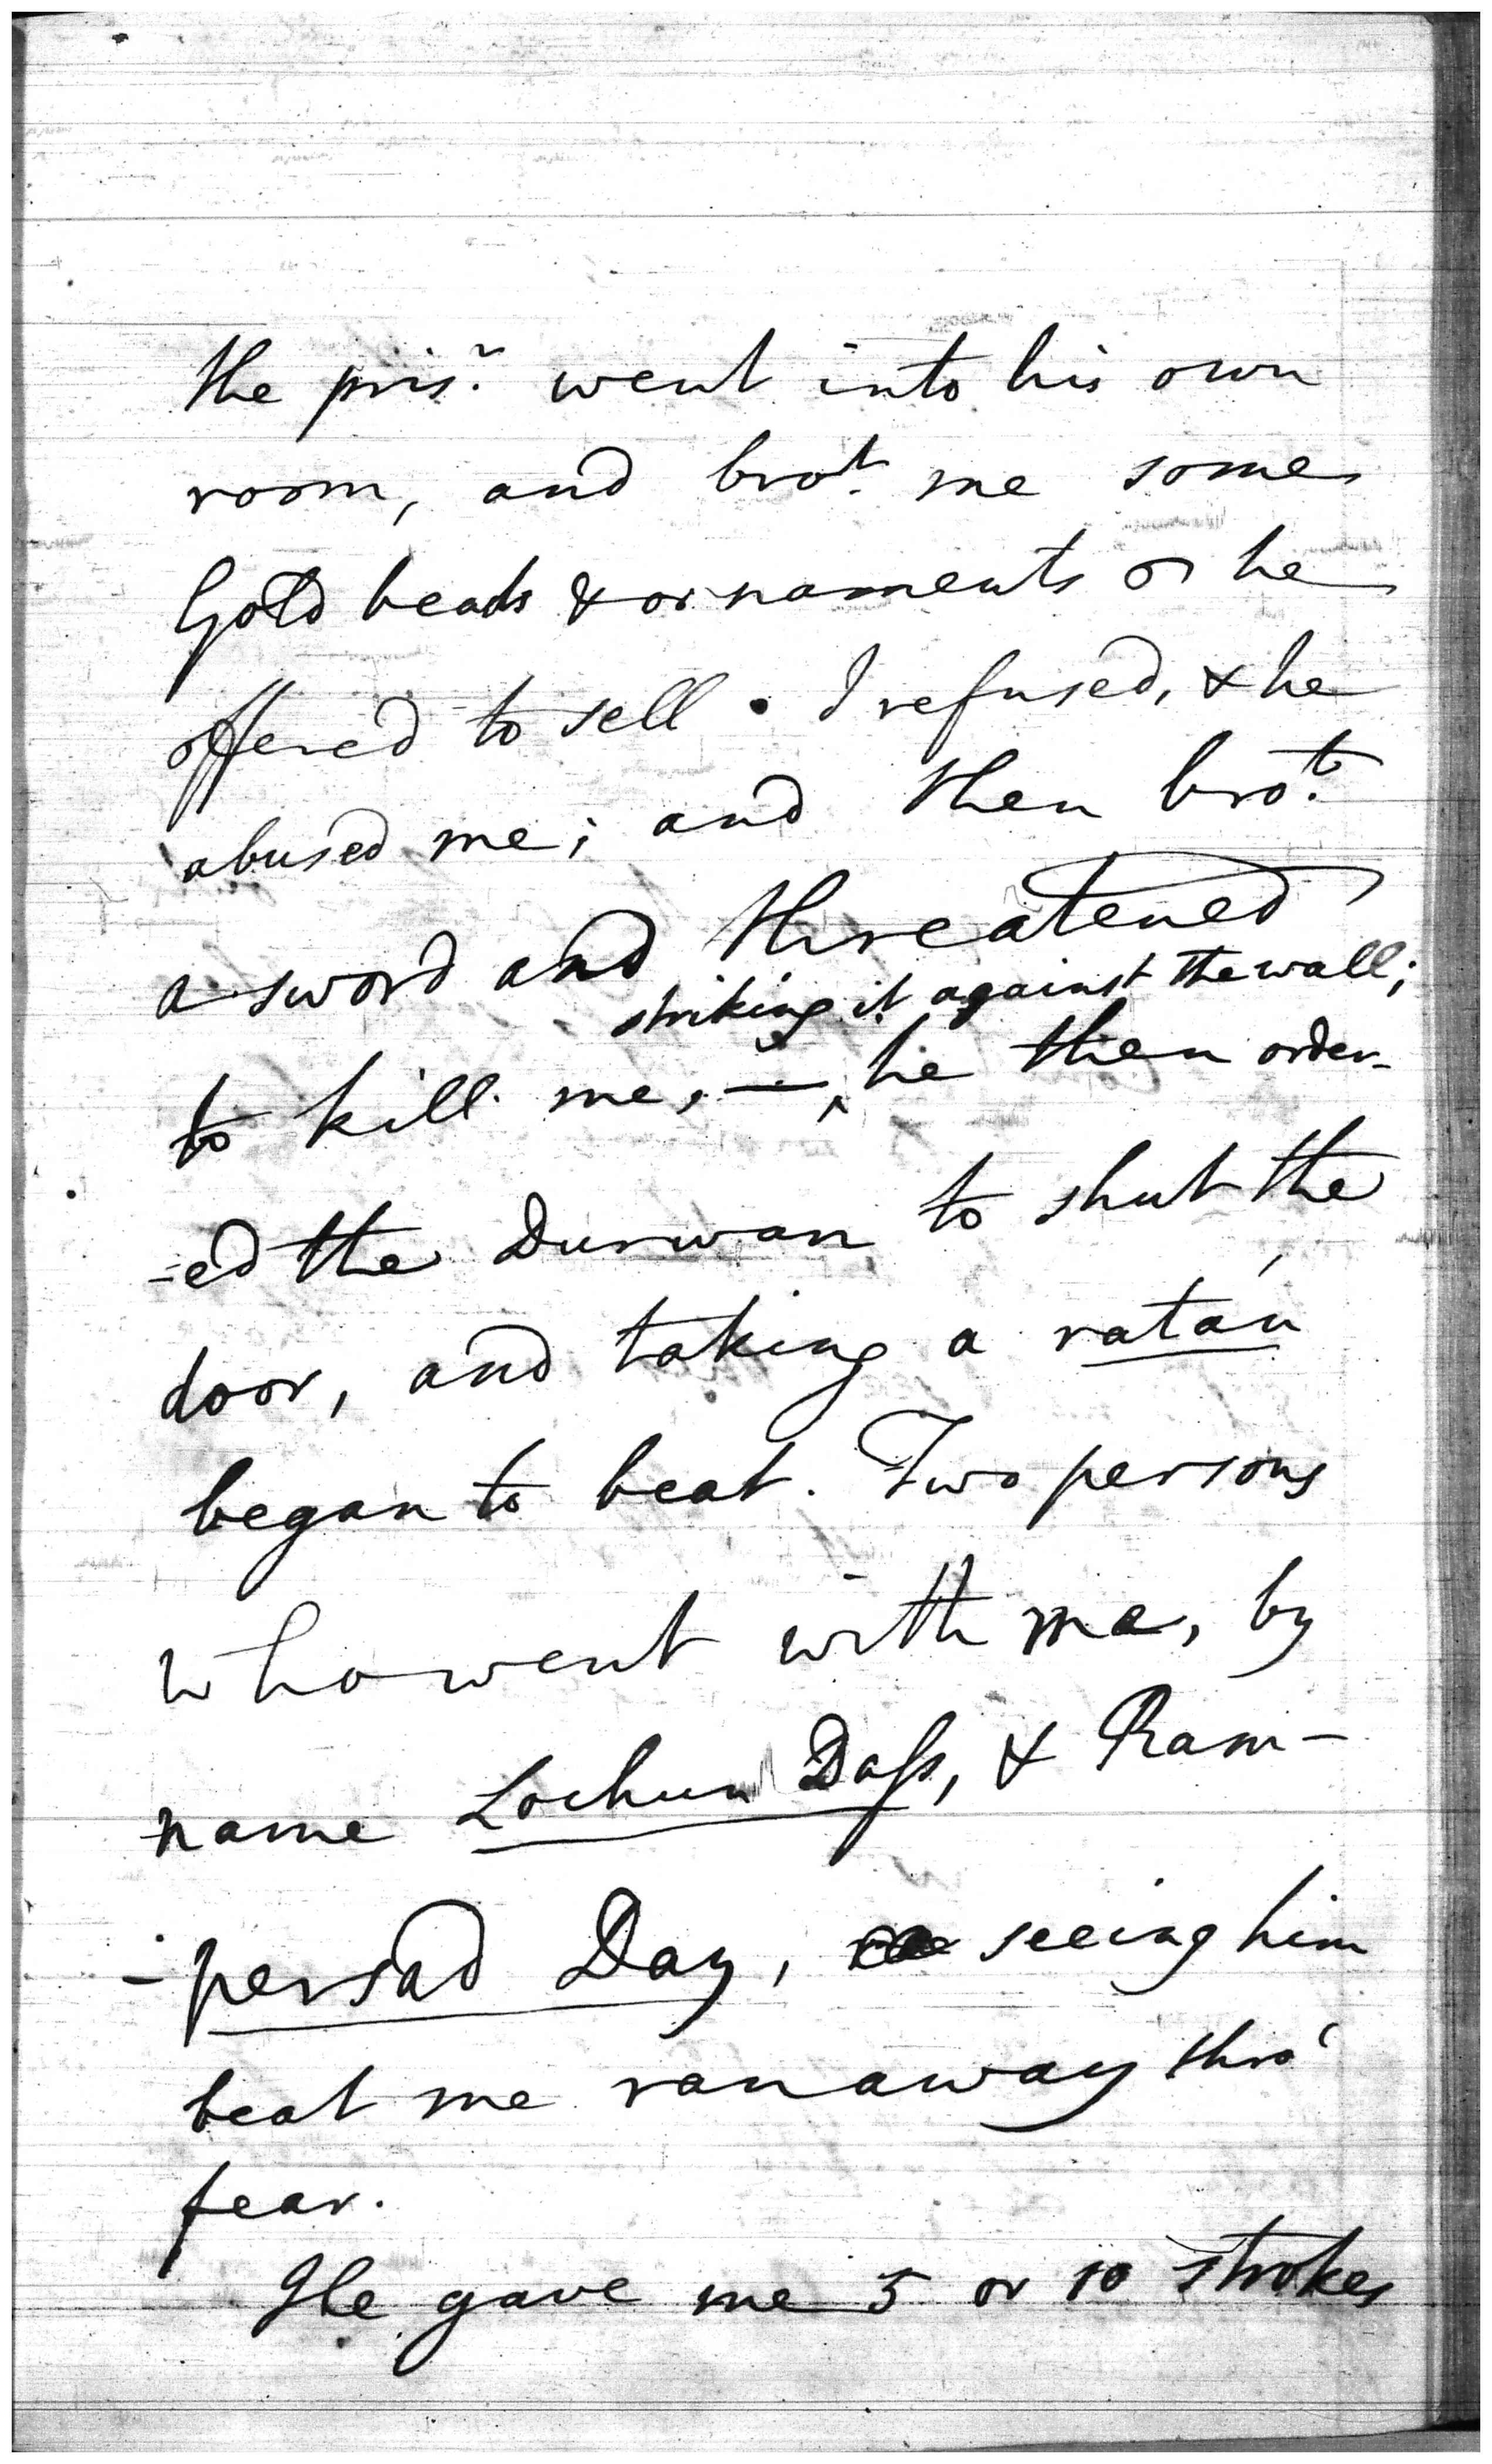 the pris.r went into his own
room, and bro.t me some
Gold beads & ornaments he
offered to sell. I refused, & he
abused me; and then bro.t
a sword and threatened
striking it against the wall;
to kill me, he then order-
-ed the Durwan to shut the
door, and taking a ratan
began to beat. Two persons
who went with me, by
name Lochun Dass, & Ram-
-persad Day, seeing him
beat me ran away thro'
fear.
He gave me 5 or 10 strokes